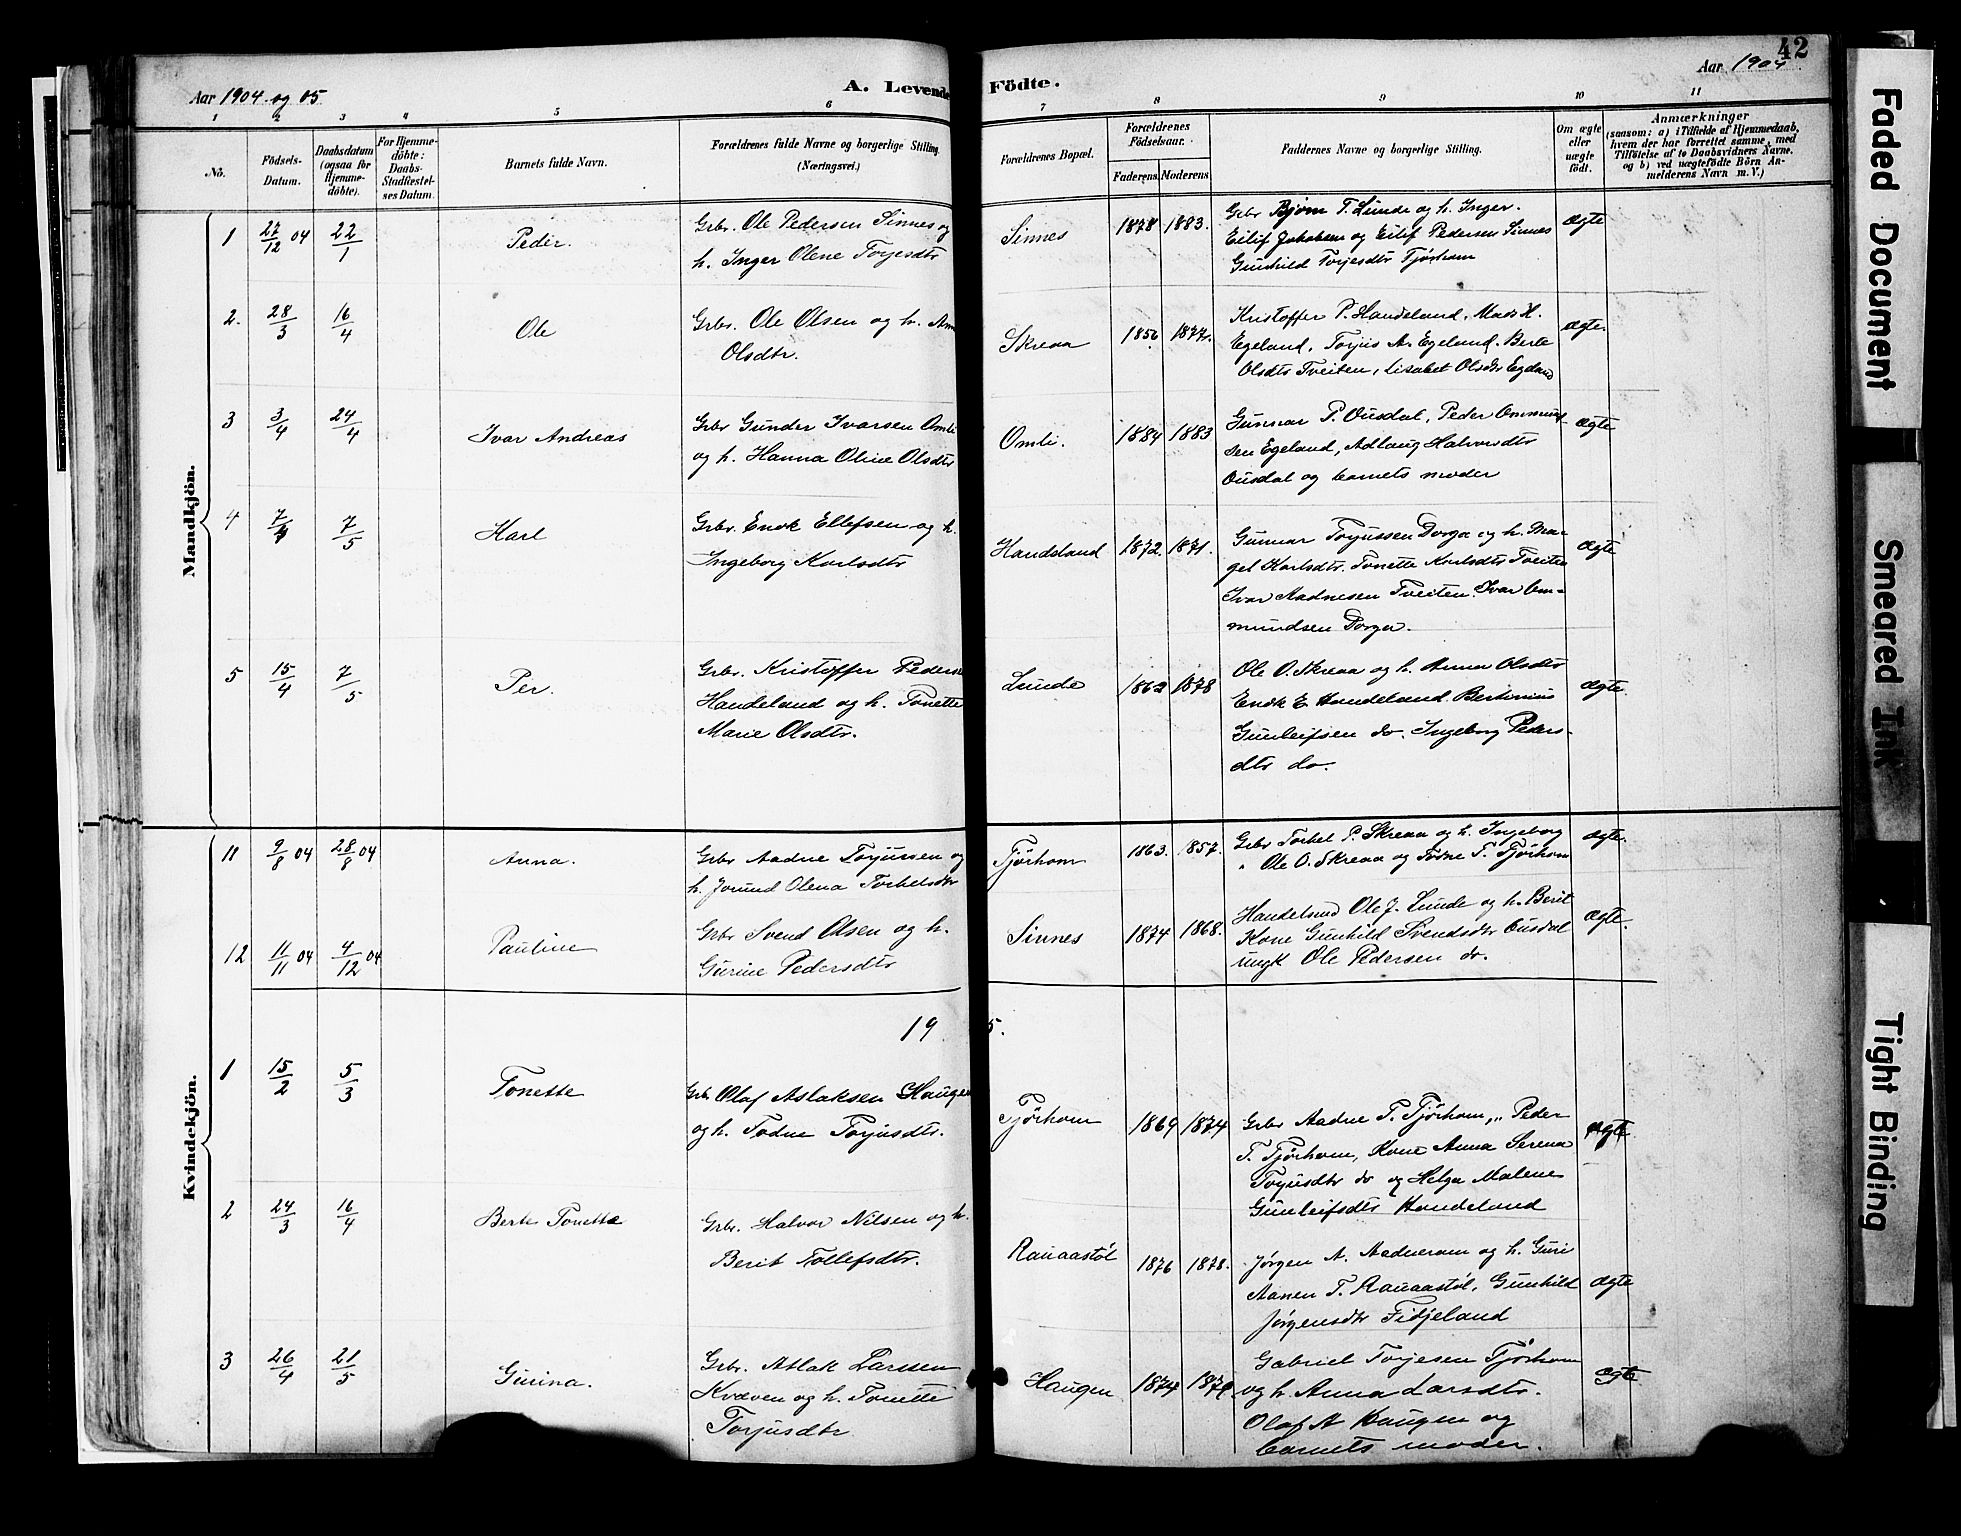 42
Aar 1904 og 05
A. Levende Födte.
Aar 1904
1 2 3 4 5 6 7 8 9 10 11
No.
Födsels-Datum.
Daabsdatum (ogsaa for Hjemme-döbte).
For Hjemme-döbte: Daabs-Stadfæstel-ses Datum.
Barnets fulde Navn.
Forældrenes fulde Navne og borgerlige Stilling. (Næringsvei.)
Forældrenes Bopæl.
Forældrenes Födselsaar.
Faderens. Moderens.
Faddernes Navne og borgerlige Stilling.
Om ægte eller uægte født.
Anmærkninger
(saasom: a) i Tilfælde af Hjemmedaab, hvem der har forrettet samme, med Tilföielse af to Daabsvidners Navne. og b) ved uægtefödte Börn An-melderens Navn m. V.)
Mandkjön.
1 27/12 04 22/1 Peder. Grbr. Ole Pedersen Sinnes og
h. Inger Olene Torjesdtr
Sinnes 1878 1883. Grbr Bjørn T. Lunde og h. Inger.
Eilif Jakobsen og Eilif Pedersen Sinnes
Gunhild Torjesdtr Tjørhom
ægte
2. 28/3 16/4 Ole Grbr. Ole Olsen og h. Ann
Olsdtr.
Skreaa 1856 1877. Kristoffer P. Handeland, Mads H.
Egeland, Torjus A. Egeland. Berte
Olsdtr Tveiten, Lisabet Olsdtr Egeland
ægte.
3 3/4 24/4 Ivar Andreas Grbr Gunder Ivarsen Omli
og h. Hanna Oline Olsdtr
Omli. 1884 1883 Gunnar P. Ousdal, Peder Ommund-
sen Egeland, Adlaug Halvorsdtr
Ousdal og barnets moder
ægte
4 7/4 7/5 Karl Grbr. Enok Ellefsen og h.
Ingeborg Karlsdtr
Handeland 1872. 1871. Gunnar Torjussen Dorga og h. Mar-
get Karlsdtr. Tonette Karlsdtr Tveiten
Ivar Aadnesen Tveiten. Ivar Om-
mundsen Dorga.
ægte
5 15/4 7/5 Per. Grbr. Kristoffer Peders
Handeland og h. Tonette
Marie Olsdtr.
Lunde 1862 1878 Ole O. Skreaa og h. Anna Olsdtr
Enok E Handeland Bertinius
Gunleifsen do. Ingeborg Peders-
dtr do.
ægte.
Kvindekjön.
11 9/8 04 28/8 04 Anna. Grbr Aadne Torjussen og
h. Jorund Olena Torkelsdtr
Tjørhom 1863. 1857. Grbr Torkel P. Skreaa og h. Ingeborg
" Ole O. Skreaa og Todne T. Tjørhom
ægte.
12 11/11 04 4/12 04 Pauline Grbr Svend Olsen og h.
Gurine Pedersdtr
Sinnes 1874 1868. Handelsmd Ole J. Lunde og h. Berit
Kone Gunhild Svendsdtr Ousdal
Ungk Ole Pedersen do.
ægte.
19 5.
1 15/2 5/3 Tonette Grbr Olaf Aslaksen Haugen
og h. Todne Torjusdtr.
Tjørhom 1869 1874 Grbr Aadne T. Tjørhom, „ Peder
T. Tjørhom, Kone Anna Serena
Torjusdtr do og Helga Malene
Gunleifsdtr Handeland
ægte
2 24/3 16/4 Berte Tonette Grbr. Halvor Nilsen og h.
Berit Tollefsdtr.
Rauaastøl 1876 1878. Jørgen A. Aadneram og h. Guri
Aanen T. Rauaastøl, Gunhild
Jørgensdtr Fidjeland
ægte
3 26/4 21/5 Gurina. Grbr. Aslak Larssen
Kvæven og h. Tonette
Torjusdtr
Haugen 1874 Gabriel Torjesen Tjørhom
og h. Anna Larsdtr.
Olaf A Haugen og
barnets moder.
ægte
Faded Document
Smeared Ink
Tight Binding